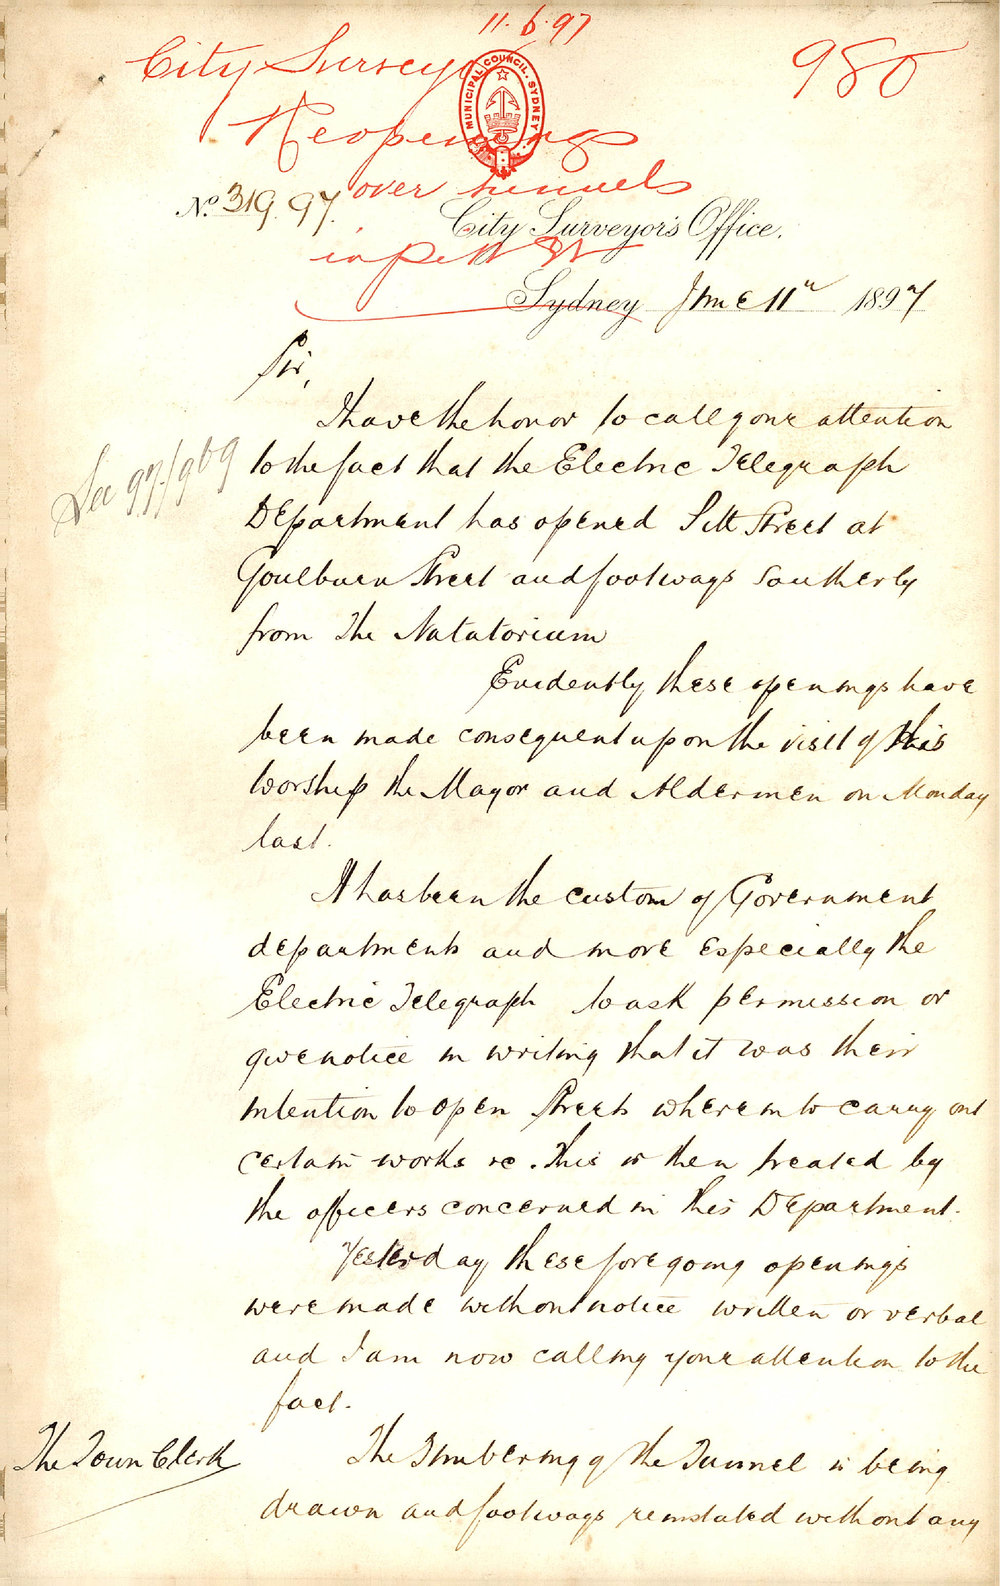 11.6.97
City Surveyor
980
MUNICIPAL COUNCIL. SYDNEY
Reopenings
over tunnels
No. 319.97.
City Surveyor's Office.
in Pitt St
Sydney June 11th 1897
Sir,
I have the honor to call your attention
See 97/969
to the fact that the Electric Telegraph
Department has opened Pitt Street at
Goulburn Street and footways Southerly
from The Natatorium
Evidently these openings have
been made consequent upon the visit of His
Worship the Mayor and Aldermen on Monday
last.
It has been the custom of Government
departments and more especially the
Electric Telegraph to ask permission or
give notice in writing that it was their
intention to open Streets wherein to carry out
certain works &c. This is then treated by
the officers concerned in this Department.
Yesterday these foregoing openings
were made without notice written or verbal
and I am now calling your attention to the
fact.
The Town Clerk
The Timbering of the Tunnel is being
drawn and footways reinstated without any